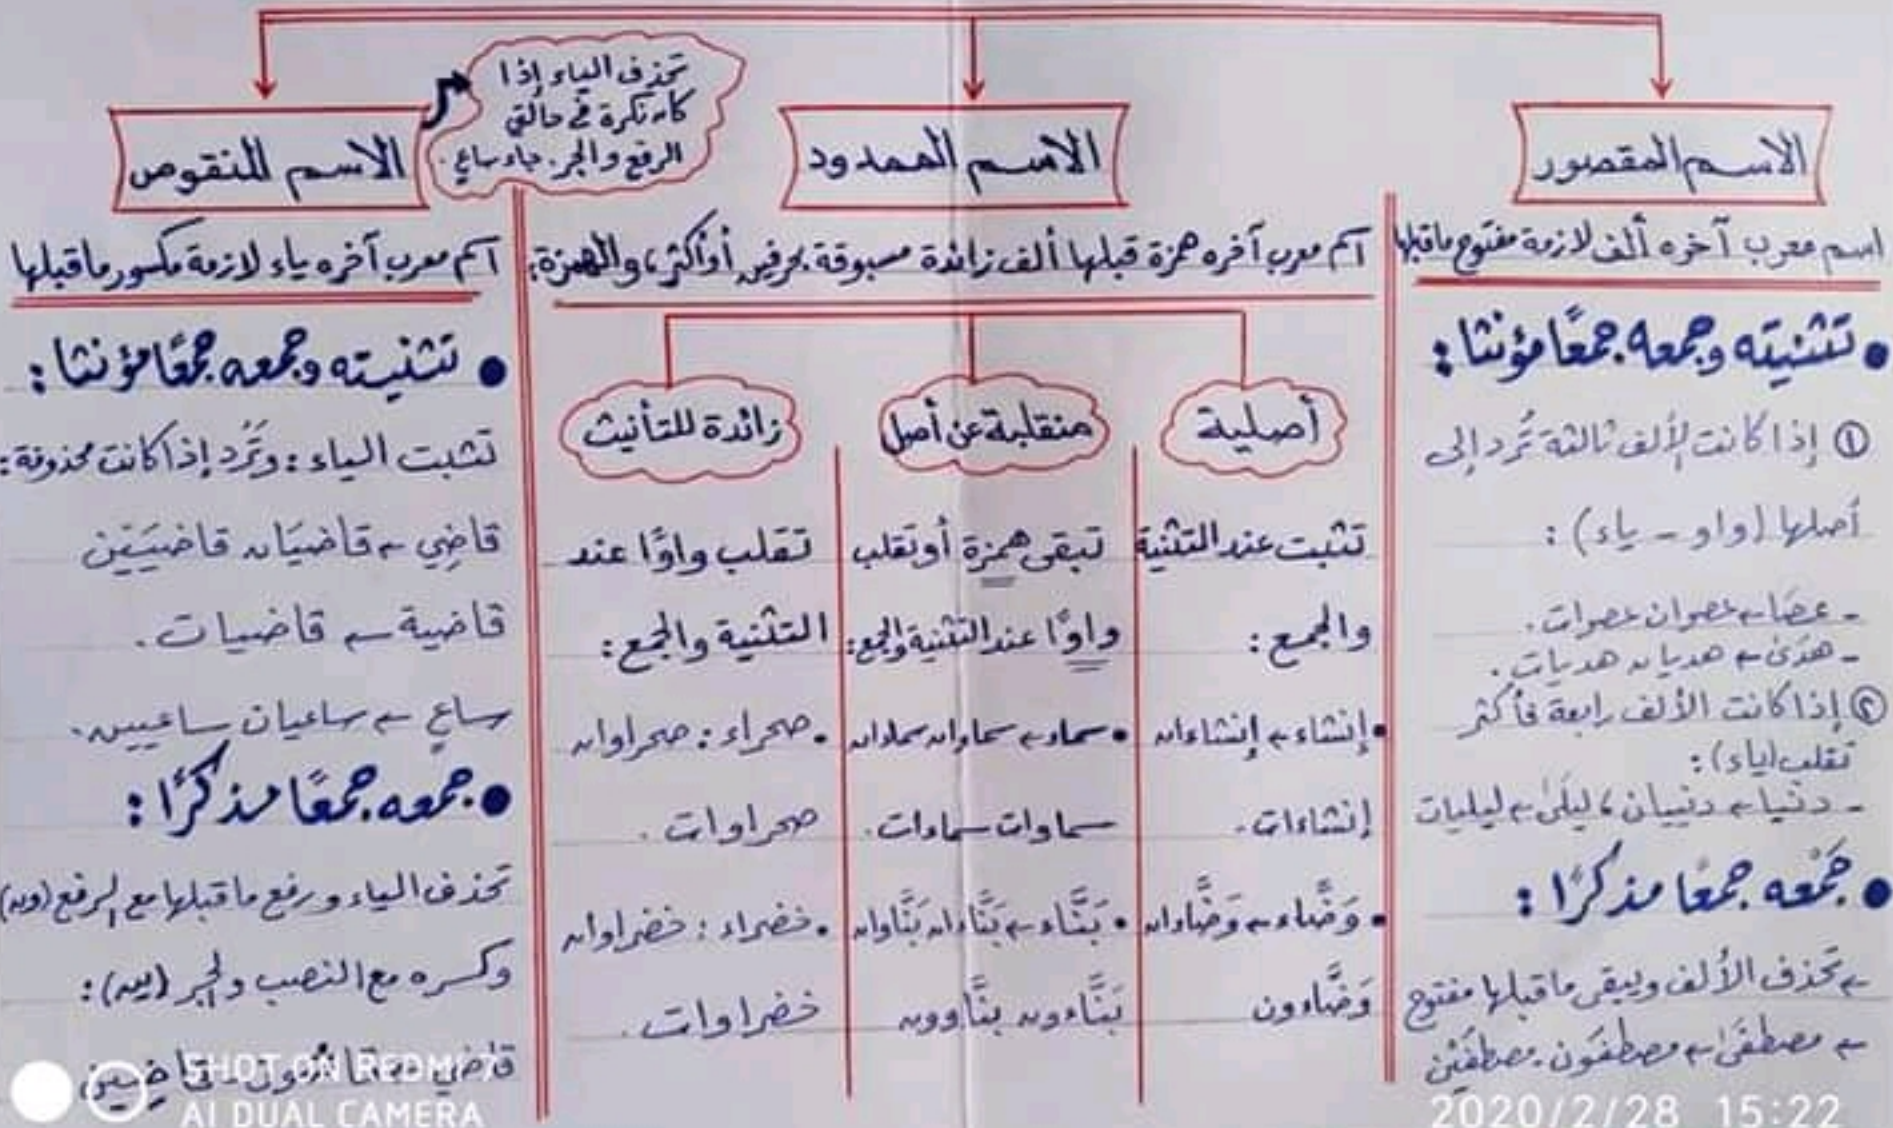 الاسم المقصور
اسم معرب آخره ألف لازمة مفتوح ماقبلها
• تثنيته وجمعه جمعًا مؤنثا :
① إذا كانت الألف ثالثة تُرد إلى
أصلها (واو - ياء) :
- عصا ← عصوان عصوات.
- هدى ← هديان هديات.
② إذا كانت الألف رابعة فأكثر
تقلب (ياء) :
- دنيا ← دنييان، ليلى ← ليليات
• جَمْعه جمعًا مذكرًا :
← تحذف الألف ويبقى ماقبلها مفتوح
← مصطفى ← مصطفَون - مصطفَيْن
الاسم الممدود
اسم معرب آخره همزة قبلها ألف زائدة مسبوقة بحرفين أو أكثر، والهمزة:
أصلية
تثبت عند التثنية
والجمع :
• إنشاء ← إنشاءان
إنشاءات.
• وَضَّاء ← وَضَّاءان
وَضَّاءون
منقلبة عن أصل
تبقى همزة أو تقلب
واوًا عند التثنية والجمع:
• سماء ← سماوان سماءان
سماوات سماءات.
• بَنَّاء ← بَنَّاءان بَنَّاوان
بَنَّاءون بنَّاوون
زائدة للتأنيث
تقلب واوًا عند
التثنية والجمع :
• صحراء : صحراوان
صحراوات.
• خضراء : خضراوان
خضراوات.
تحذف الياء إذا
كان نكرة في حالتي
الرفع والجر. جاء ساعٍ.
الاسم المنقوص
اسم معرب آخره ياء لازمة مكسور ماقبلها
• تثنيته وجمعه جمعًا مؤنثا :
تثبت الياء : وتُرد إذا كانت محذوفة :
قاضِي ← قاضيَان قاضيَيْن
قاضية ← قاضيات.
ساعٍ ← ساعيان ساعيين.
• جمعه جمعًا مذكرًا :
تحذف الياء ورفع ماقبلها مع الرفع (ون)
وكسره مع النصب والجر (ين) :
قاضي ← قاضُون - قاضِين
SHOT ON REDMI 7
AI DUAL CAMERA
2020/2/28 15:22